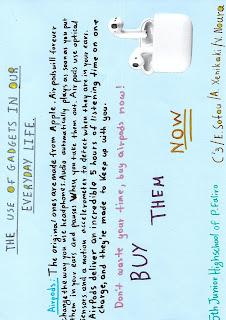 THE USE OF GADGETS IN OUR
EVERYDAY LIFE.
Airpods: The original ones are made from Apple. Airpods will forever
change the way you use headphones. Audio automatically plays as soon as you put
them in your ears and pauses when you take them out. Airpods use optical
sensors and a motion accelerometer to detect when they are in your ears.
AirPods deliver an incredible 5 hours of listening time on one
charge, and they're made to keep up with you.
Don't waste your time, buy airpods now!
BUY THEM NOW
5th Junior Highschool of P. Faliro C'3/ E. Sofou/A. Xenikaki/V. Noura